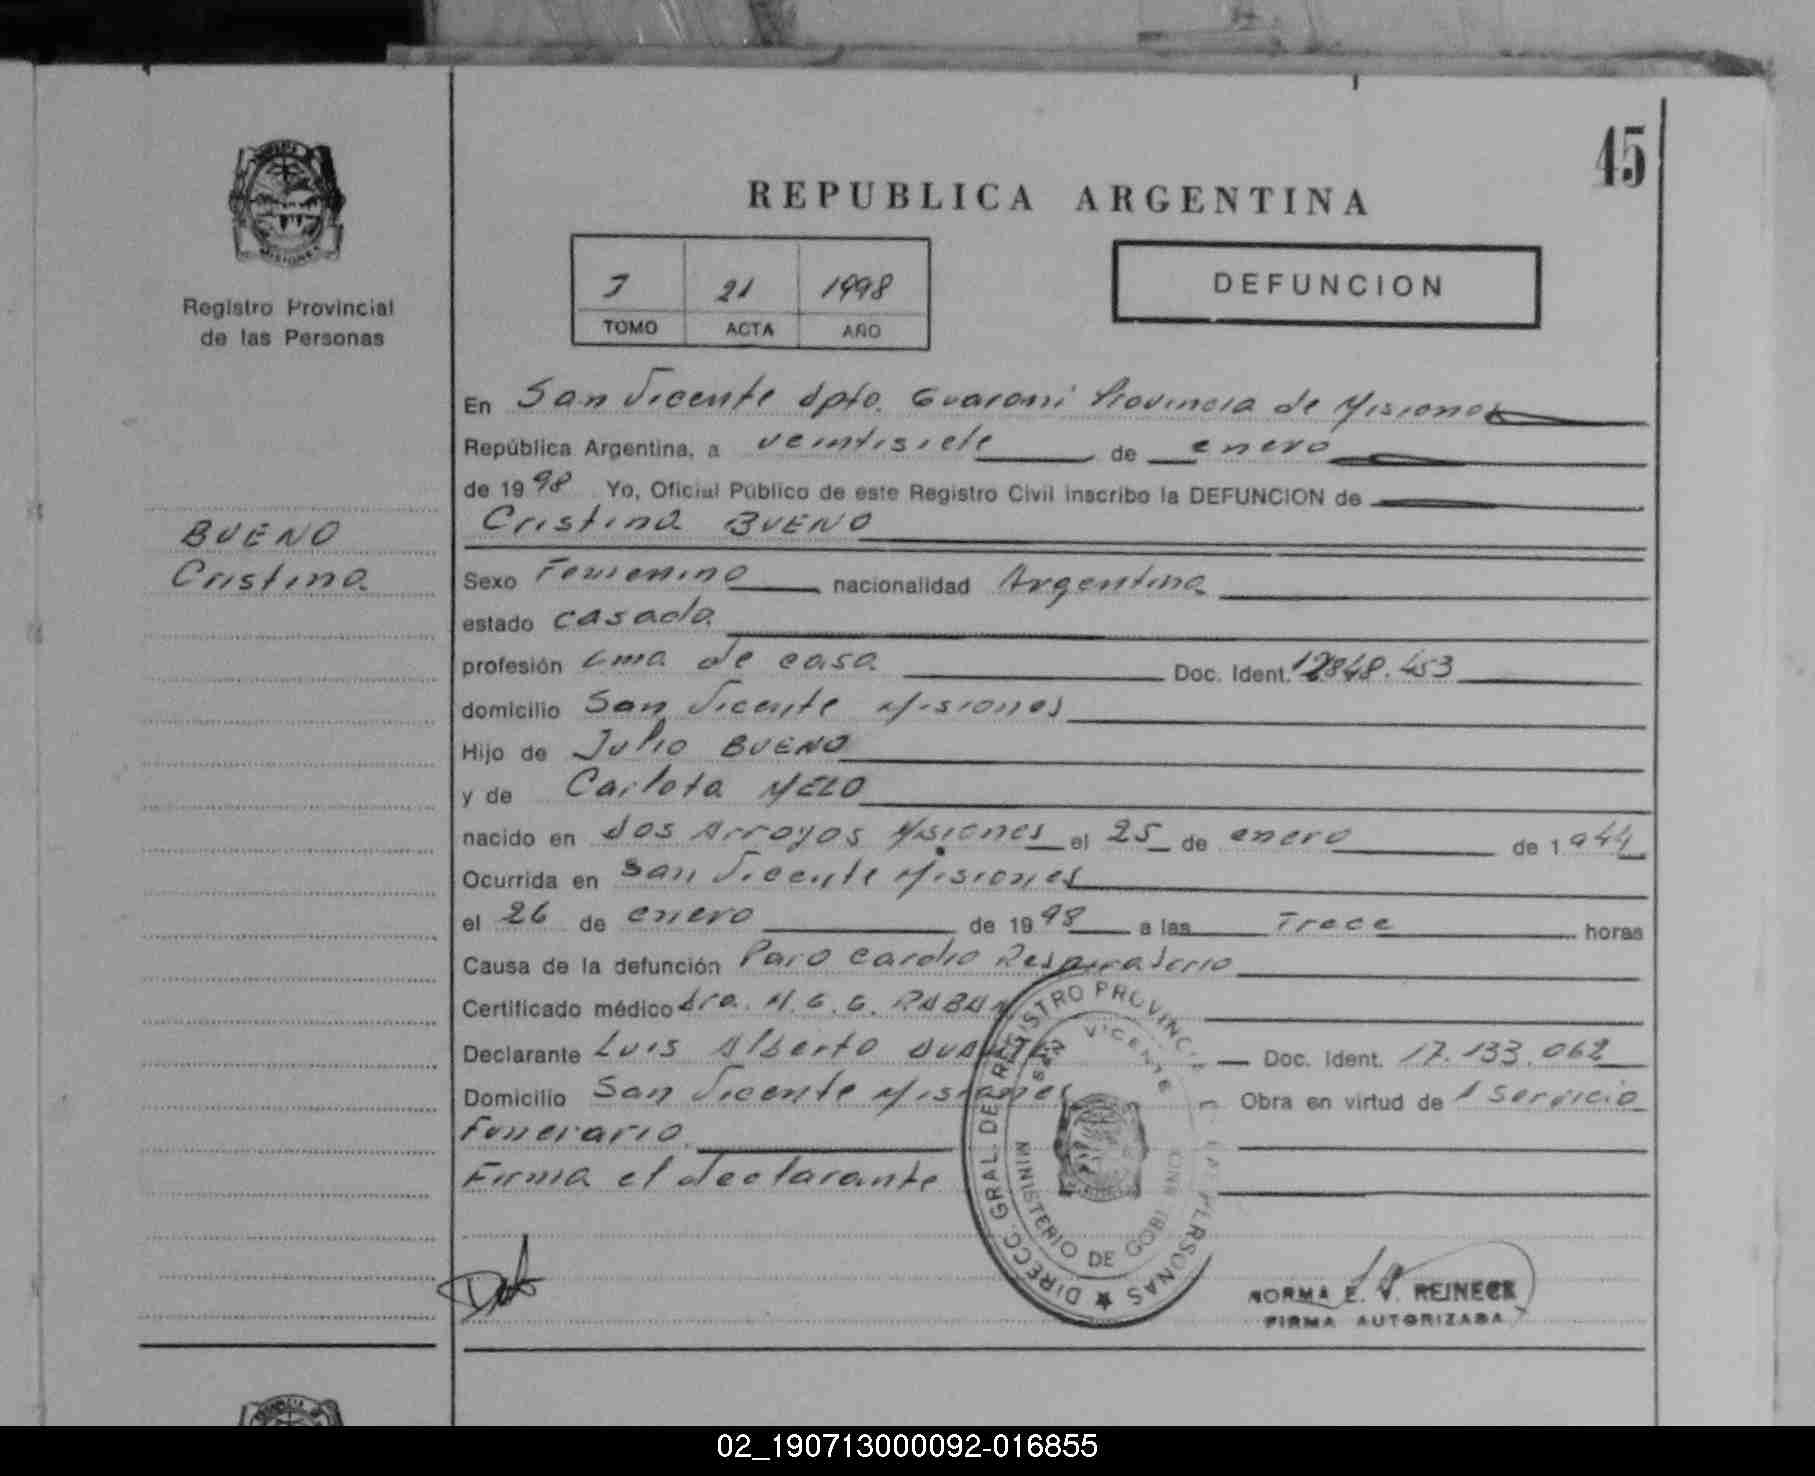 45
REPUBLICA ARGENTINA
Registro Provincial
de las Personas
21 1998
TOMO ACTA AÑO
DEFUNCION
En San Vicente dpto. Guarani Provincia de Misiones
República Argentina, a veintisiete de enero
de 1998 Yo, Oficial Público de este Registro Civil inscribo la DEFUNCION de
Cristina BUENO
BUENO
Cristina
Sexo Femenino nacionalidad Argentina
estado casada
profesión ama de casa Doc. Ident. 12848.453
domicilio San Vicente Misiones
Hijo de Julio BUENO
y de Carlota MELO
nacido en dos Arroyos Misiones el 25 de enero de 1944
Ocurrida en San Vicente Misiones
el 26 de enero de 1998 a las Trece horas
Causa de la defunción Paro Cardio Respiratorio
Certificado médico dra. M. G. G.
Declarante Luis Alberto Doc. Ident. 17.133.062
Domicilio San Vicente Misiones Obra en virtud de / Servicio
Funerario.
Firma el declarante
DIRECC. GRAL. DE REGISTRO PROVINC PERSONAS
SAN VICENTE
MINISTERIO DE GOBI RNO
NORMA E. V. REINECK
FIRMA AUTORIZADA
02_190713000092-016855